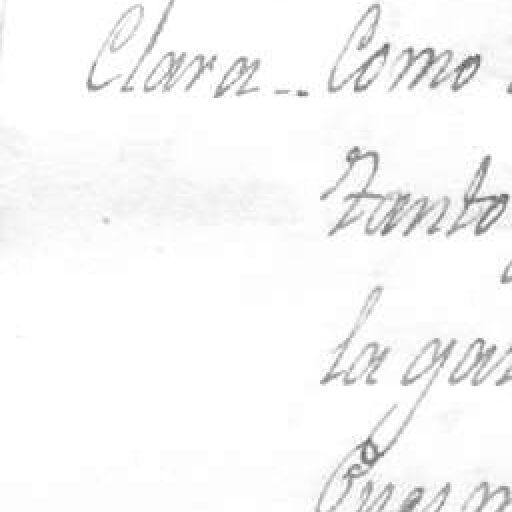 Clara -- Como
Tanto
la gar
Pues m